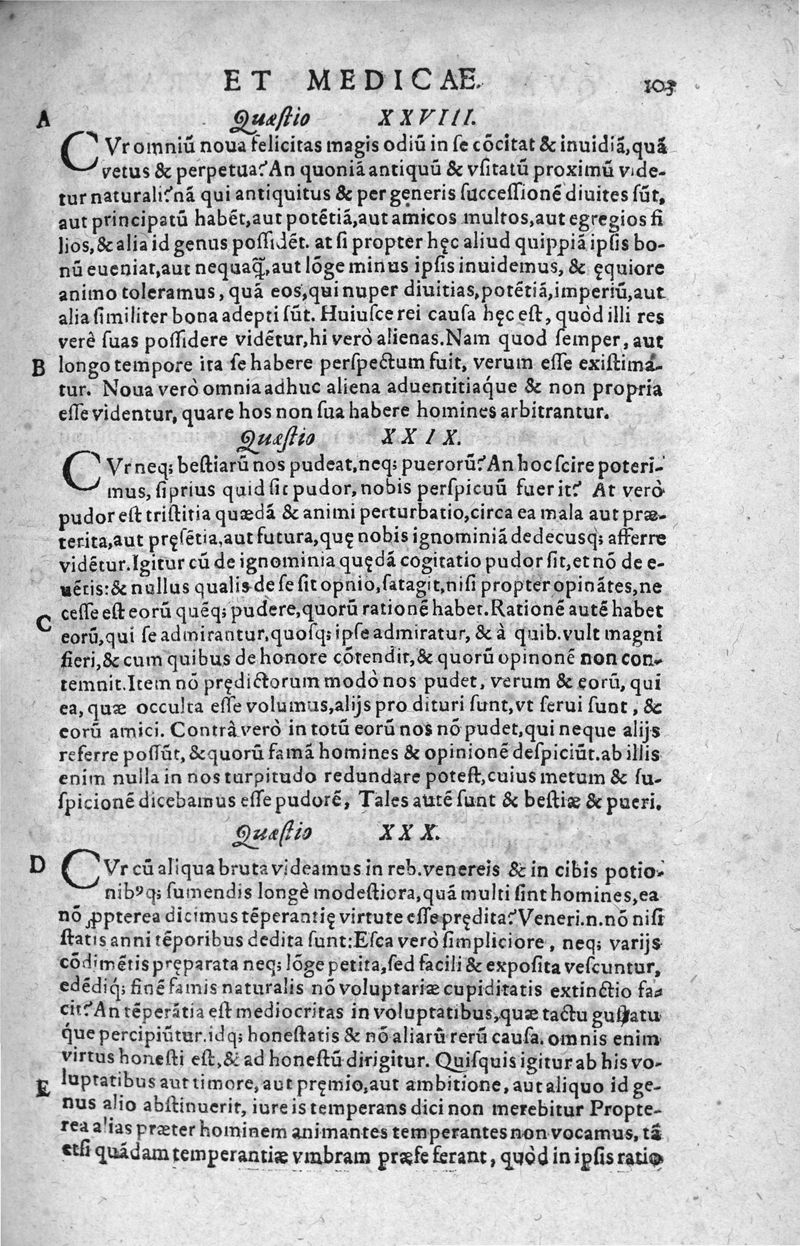 ET MEDICAE. 103
A Quæstio XXVIII.
CVr omniũ noua felicitas magis odiũ in se cõcitat & inuidiã, quã
vetus & perpetua? An quoniã antiquũ & vsitatũ proximũ vide-
tur naturali? nã qui antiquitus & per generis successionẽ diuites sũt,
aut principatũ habẽt, aut potẽtiã, aut amicos multos, aut egregios fi
lios, & alia id genus possidẽt. at si propter hęc aliud quippiã ipsis bo-
nũ eueniat, aut nequaq̃, aut lõge minus ipsis inuidemus, & ęquiore
animo toleramus, quã eos, qui nuper diuitias, potẽtiã, imperiũ, aut
alia similiter bona adepti sũt. Huiusce rei causa hęc est, quòd illi res
verê suas possidere vidẽtur, hi verò alienas. Nam quod semper, aut
B longo tempore ita se habere perspectum fuit, verum esse existimã-
tur. Noua verò omnia adhuc aliena aduentitiáque & non propria
esse videntur, quare hos non sua habere homines arbitrantur.
Quæstio XXIX.
CVr neq; bestiarũ nos pudeat, neq; puerorũ? An hoc scire poteri-
mus, si prius quid sit pudor, nobis perspicuũ fuerit? At verò
pudor est tristitia quædã & animi perturbatio, circa ea mala aut præ-
terita, aut pręsẽtia, aut futura, quę nobis ignominiã dedecusq; afferre
vidẽtur. Igitur cũ de ignominia quędã cogitatio pudor sit, et nõ de e-
uẽtis: & nullus qualis de se sit opnio, satagit, nisi propter opinãtes, ne
C cesse est eorũ quẽq; pudere, quorũ rationẽ habet. Rationẽ autẽ habet
eorũ, qui se admirantur, quosq; ipse admiratur, & à quib. vult magni
fieri, & cum quibus de honore cõtendit, & quorũ opinonẽ non con-
temnit. Item nõ prędictorum modò nos pudet, verum & eorũ, qui
ea, quæ occulta esse volumus, alijs pro dituri sunt, vt serui sunt, &
eorũ amici. Contrà verò in totũ eorũ nos nõ pudet, qui neque alijs
referre possũt, & quorũ famã homines & opinionẽ despiciũt. ab illis
enim nulla in nos turpitudo redundare potest, cuius metum & su-
spicionẽ dicebamus esse pudorẽ, Tales autẽ sunt & bestiæ & pueri.
Quæstio XXX.
D CVr cũ aliqua bruta videamus in reb. venereis & in cibis potio-
nibꝰq; sumendis longè modestiora, quã multi sint homines, ea
nõ ꝓpterea dicimus tẽperantię virtute esse prędita? Veneri. n. nõ nisi
statis anni tẽporibus dedita sunt: Esca verò simpliciore, neq; varijs
cõdimẽtis pręparata neq; lõge petita, sed facili & exposita vescuntur,
edẽdiq; finẽ famis naturalis nõ voluptariæ cupiditatis extinctio fa-
cit? An tẽperãtia est mediocritas in voluptatibus, quæ tactu gustatu
q́ue percipiũtur. idq; honestatis & nõ aliarũ rerũ causa. omnis enim
virtus honesti est, & ad honestũ dirigitur. Quisquis igitur ab his vo-
E luptatibus aut timore, aut pręmio, aut ambitione, aut aliquo id ge-
nus alio abstinuerit, iure is temperans dici non merebitur Propte-
rea alias præter hominem animantes temperantes non vocamus, tã
etsi quãdam temperantiæ vmbram præse ferant, quòd in ipsis ratio